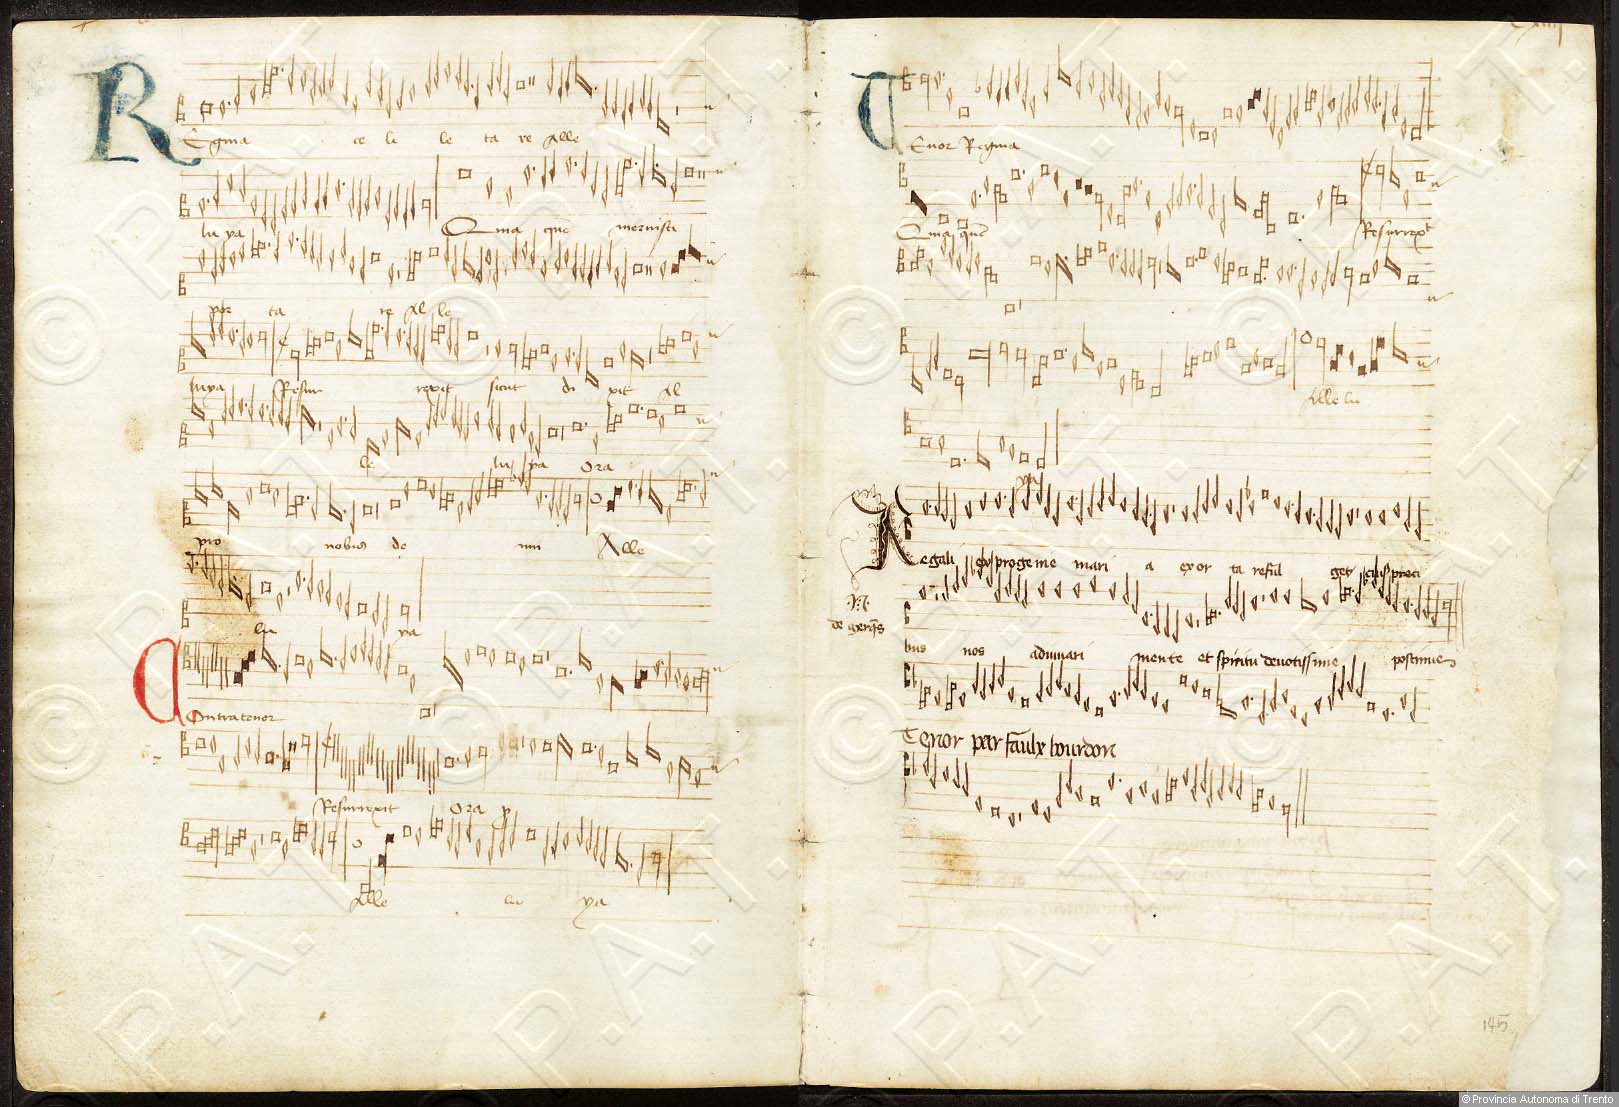 REgina ce li le ta re Alle
lu ya Quia quē meruisti
por ta re Al le
luya Resur rexit sicut di xit Al
le lu ya Ora
pro nobis de um Alle
lu ya
COntratenor
Resurrexit Ora p
Alle lu ya
TEnor Regina
Quia quē Resurrext
Alle lu
ya
Regali ex progenie mari a exor ta reful get cuius preci
de
bus nos adiuuari mente et spiritu deuotissime poscimus
Tenor par faulx bourdon
145
© P.A.T.
© Provincia Autonoma di Trento